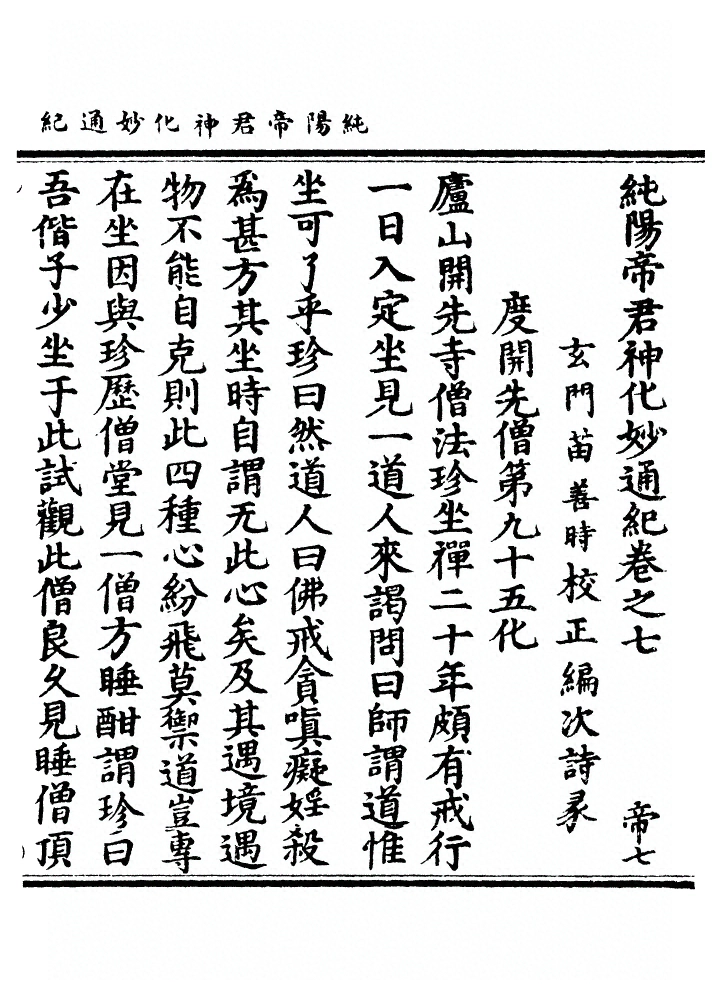 純陽帝君神化妙通紀
純陽帝君神化妙通紀卷之七 帝七
玄門苗善時校正編次詩彖
度開先僧第九十五化
廬山開先寺僧法珍坐禪二十年頗有戒行
一日入定坐見一道人來謁問曰師謂道惟
坐可了乎珍曰然道人曰佛戒貪嗔癡婬殺
爲甚方其坐時自謂无此心矣及其遇境遇
物不能自克則此四種心紛飛莫禦道豈專
在坐因與珍歷僧堂見一僧方睡酣謂珍曰
吾偕子少坐于此試觀此僧良久見睡僧頂